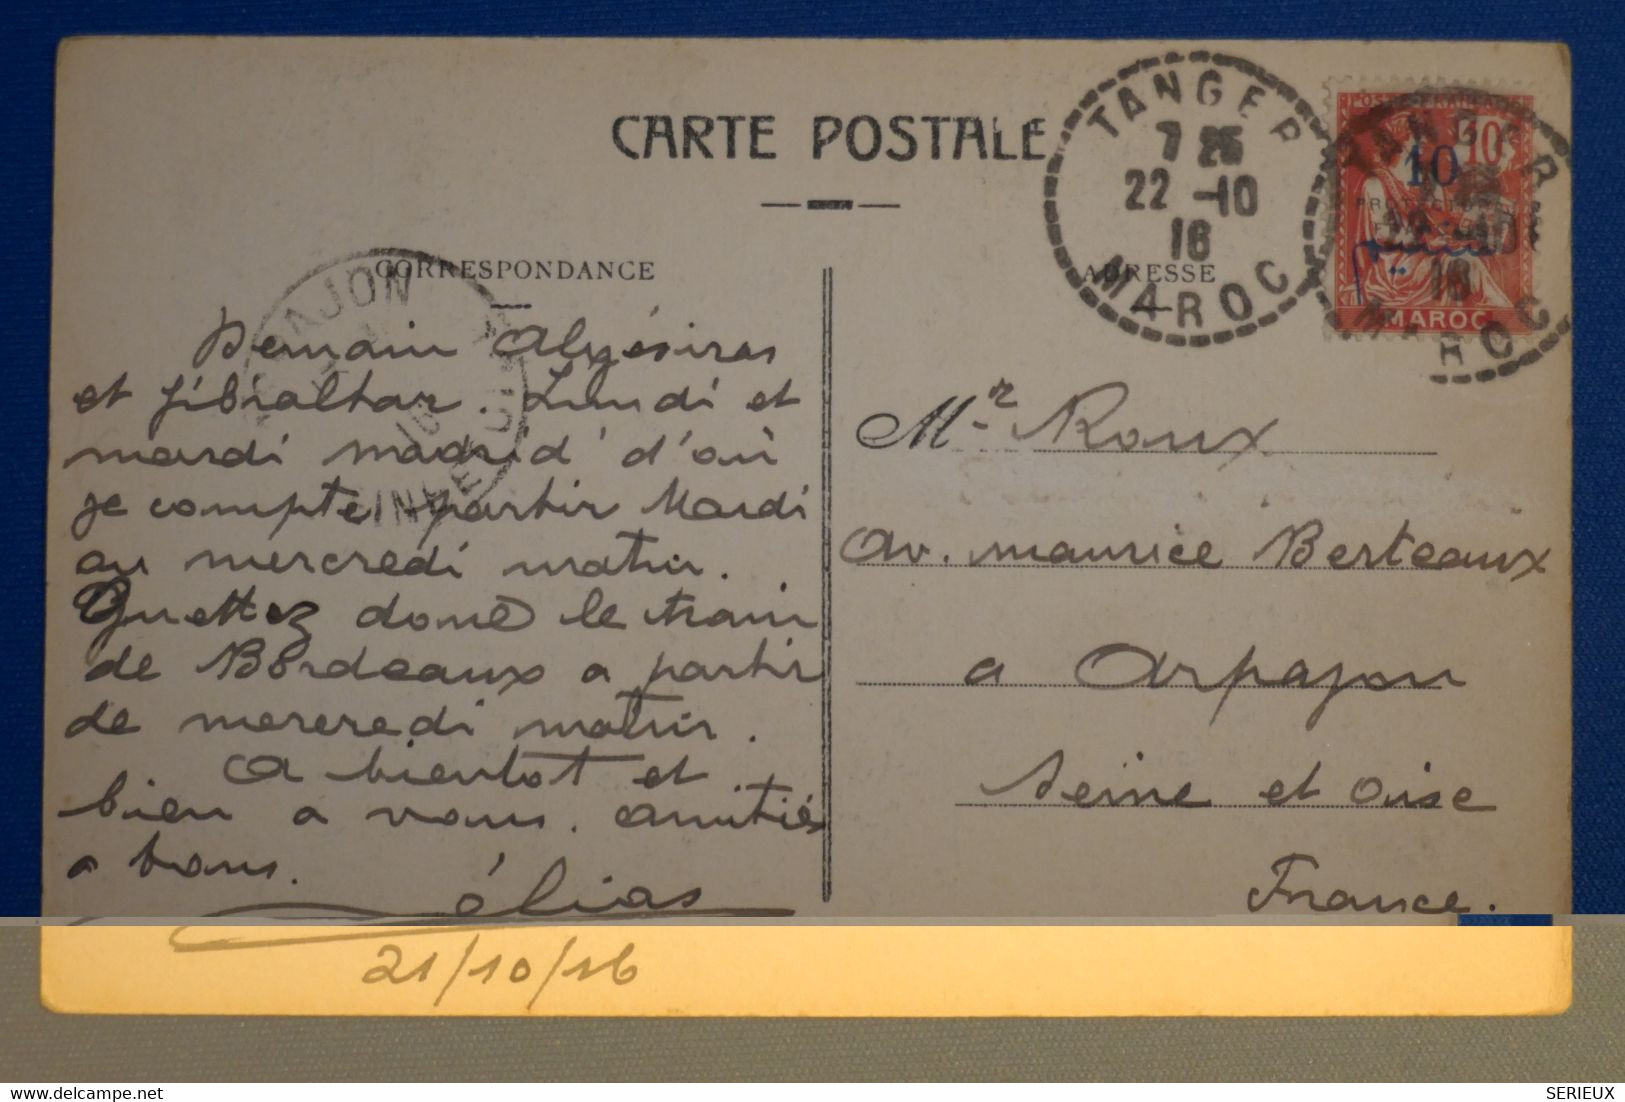 CARTE POSTALE
TANGER
7 25
22 -10
16
MAROC
TANGER
22 -10
16
MAROC
POSTE FRANÇAISE
10
10
PROTECTORAT
MAROC
ARPAJON
16
SEINE-ET-OISE
CORRESPONDANCE
Demain Algésiras
et Gibraltar. Lundi et
mardi Madrid d'où
je compte partir Mardi
ou mercredi matin.
Guettez donc le train
de Bordeaux a partir
de mercredi matin.
A bientot et
bien a vous. Amitiés
a tous.
élias
21/10/16
ADRESSE
Mr Roux
Av. Maurice Berteaux
a Arpajon
Seine et Oise
France.
delcampe.net
SERIEUX